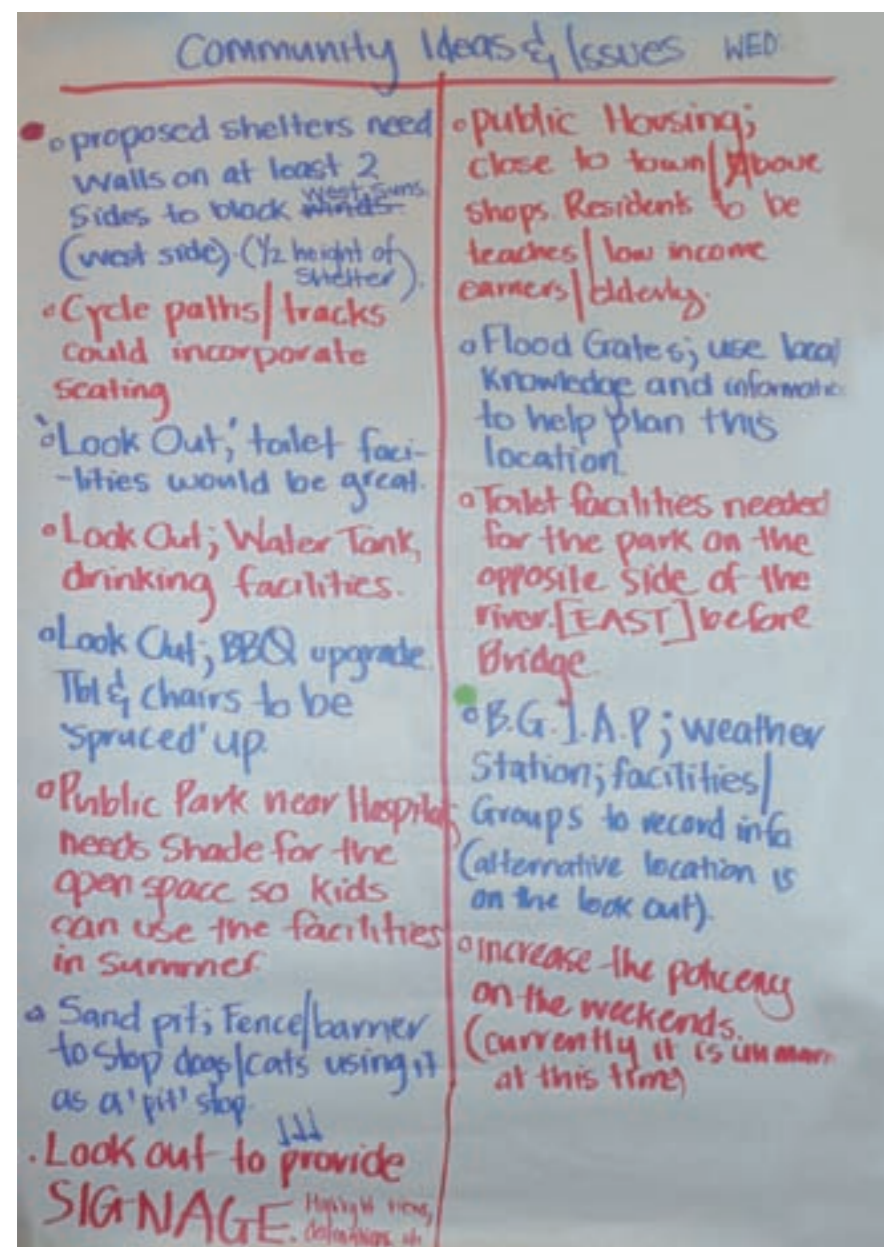 Community Ideas & Issues WED
proposed shelters need
walls on at least 2
sides to block winds West Suns.
(west side). (1/2 height of
shelter).
Cycle paths/tracks
could incorporate
seating
'Look Out;' toilet faci-
-lities would be great.
Look Out; Water Tank,
drinking facilities.
Look Out; BBQ upgrade
Tbl & Chairs to be
'spruced' up.
Public Park near Hospital;
needs shade for the
open space so kids
can use the facilities
in summer
Sand pit; Fence/barrier
to stop dogs/cats using it
as a 'pit' stop.
Look out to provide
SIGNAGE. Highlight views,
public Housing;
close to town/Above
shops. Residents to be
teaches/low income
earners/elderly.
Flood Gates; use local
knowledge and informatio
to help plan this
location.
Toilet facilities needed
for the park on the
opposite side of the
river. [EAST] before
Bridge
B.G.I.A.P; weather
Station; facilities/
Groups to record info
(alternative location is
on the look out).
Increase the policeny
on the weekends.
(currently it is unmann
at this time)